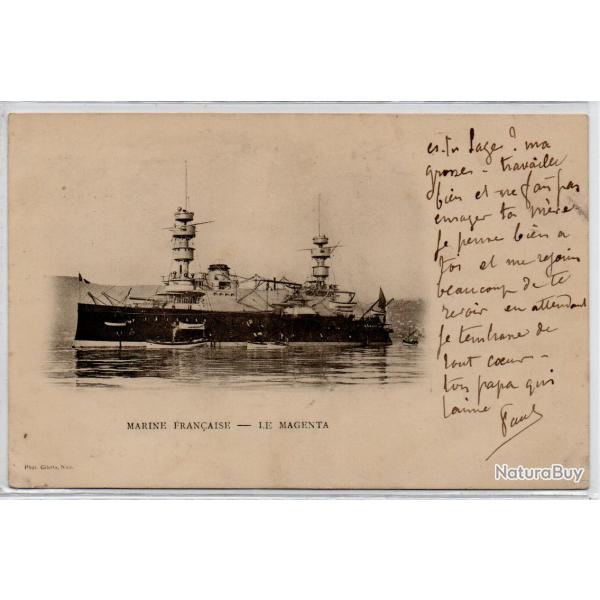 es-tu sage ? ma
grosse - travaille
bien et ne fais pas
enrager ta mère
Je pense bien a
toi et me rejouis
beaucoup de te
revoir en attendant
je t'embrasse de
tout cœur -
ton papa qui
t'aime Paul
MARINE FRANÇAISE — LE MAGENTA
Phot. Giletta, Nice.
NaturaBuy